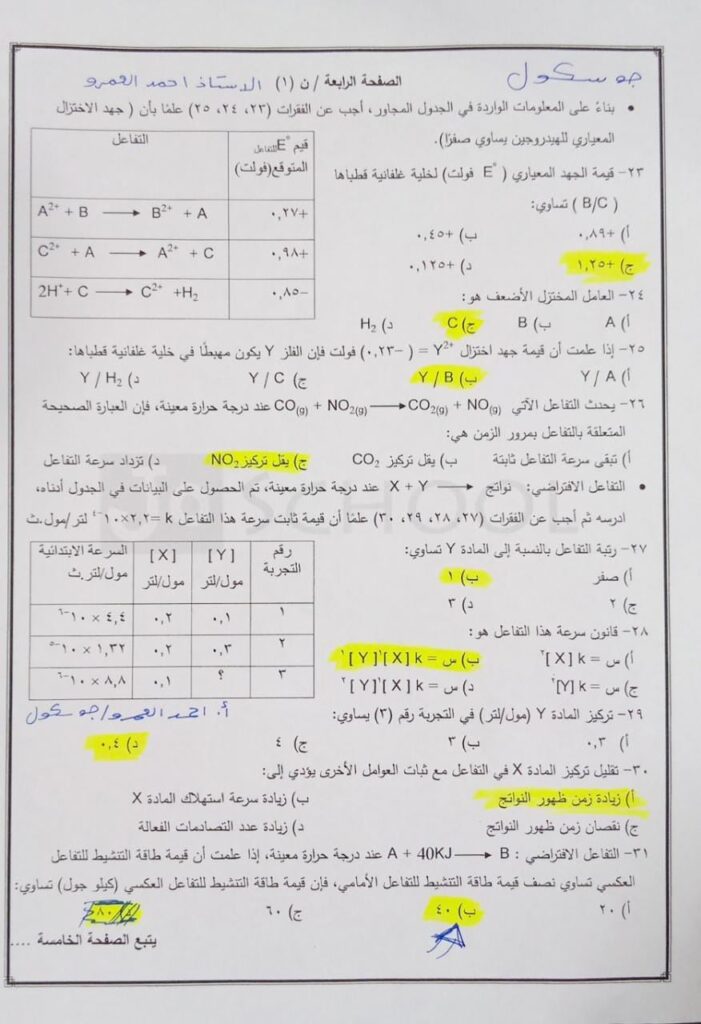 جو سكول
الصفحة الرابعة / ن (١) الاستاذ احمد العمرو
• بناءً على المعلومات الواردة في الجدول المجاور، أجب عن الفقرات (٢٣، ٢٤، ٢٥) علمًا بأن (جهد الاختزال
المعياري للهيدروجين يساوي صفرًا).
قيم E° للتفاعل المتوقع(فولت) التفاعل
+٠,٢٧ A²⁺ + B ⟶ B²⁺ + A
+٠,٩٨ C²⁺ + A ⟶ A²⁺ + C
−٠,٨٥ 2H⁺+ C ⟶ C²⁺ +H₂
٢٣− قيمة الجهد المعياري ( E° فولت) لخلية غلفانية قطباها
( B/C ) تساوي:
أ) +٠,٨٩ ب) +٠,٤٥
ج) +١,٢٥ د) +٠,١٢٥
٢٤− العامل المختزل الأضعف هو:
أ) A ب) B ج) C د) H₂
٢٥− إذا علمت أن قيمة جهد اختزال Y²⁺ = ( −٠,٢٣) فولت فإن الفلز Y يكون مهبطًا في خلية غلفانية قطباها:
أ) Y / A ب) Y / B ج) Y / C د) Y / H₂
٢٦− يحدث التفاعل الآتي CO(g) + NO₂(g) ⟶ CO₂(g) + NO(g) عند درجة حرارة معينة، فإن العبارة الصحيحة
المتعلقة بالتفاعل بمرور الزمن هي:
أ) تبقى سرعة التفاعل ثابتة ب) يقل تركيز CO₂ ج) يقل تركيز NO₂ د) تزداد سرعة التفاعل
SCHOOL
• التفاعل الافتراضي: X + Y ⟶ نواتج عند درجة حرارة معينة، تم الحصول على البيانات في الجدول أدناه،
ادرسه ثم أجب عن الفقرات (٢٧، ٢٨، ٢٩، ٣٠) علمًا أن قيمة ثابت سرعة هذا التفاعل k =٢,٢×١٠⁻⁴ لتر/مول.ث
رقم التجربة [Y] مول/لتر [X] مول/لتر السرعة الابتدائية مول/لتر.ث
١ ٠,١ ٠,٢ ٤,٤ × ١٠⁻⁶
٢ ٠,٣ ٠,٢ ١,٣٢ × ١٠⁻⁵
٣ ؟ ٠,١ ٨,٨ × ١٠⁻⁶
٢٧− رتبة التفاعل بالنسبة إلى المادة Y تساوي:
أ) صفر ب) ١
ج) ٢ د) ٣
٢٨− قانون سرعة هذا التفاعل هو:
أ) س = k [X]² ب) س = k [X]¹[Y]¹
ج) س = k [Y]² د) س = k [X]¹[Y]²
أ. احمد العمرو/جو سكول
٢٩− تركيز المادة Y (مول/لتر) في التجربة رقم (٣) يساوي:
أ) ٠,٣ ب) ٣ ج) ٤ د) ٠,٤
٣٠− تقليل تركيز المادة X في التفاعل مع ثبات العوامل الأخرى يؤدي إلى:
أ) زيادة زمن ظهور النواتج ب) زيادة سرعة استهلاك المادة X
ج) نقصان زمن ظهور النواتج د) زيادة عدد التصادمات الفعالة
٣١− التفاعل الافتراضي : A + 40KJ ⟶ B عند درجة حرارة معينة، إذا علمت أن قيمة طاقة التنشيط للتفاعل
العكسي تساوي نصف قيمة طاقة التنشيط للتفاعل الأمامي، فإن قيمة طاقة التنشيط للتفاعل العكسي (كيلو جول) تساوي:
أ) ٢٠ ب) ٤٠ ج) ٦٠ د) ٨٠
يتبع الصفحة الخامسة ....